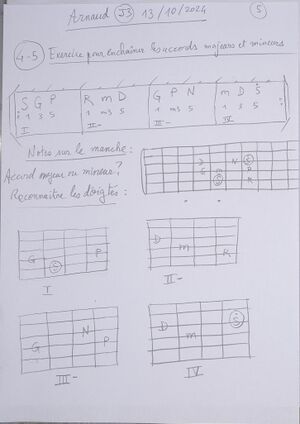 Arnaud J3 13/10/2024 5
4-5 Exercice pour enchaîner les accords majeurs et mineurs
S G P R m D G P N m D S
1 3 5 1 m3 5 1 m3 5 1 3 5
I II- III- IV
Notes sur le manche:
D N S
G m P
S R
Accord majeur ou mineur?
Reconnaître les doigtés:
G S P
D m R
I II-
G N P
D m S
III- IV